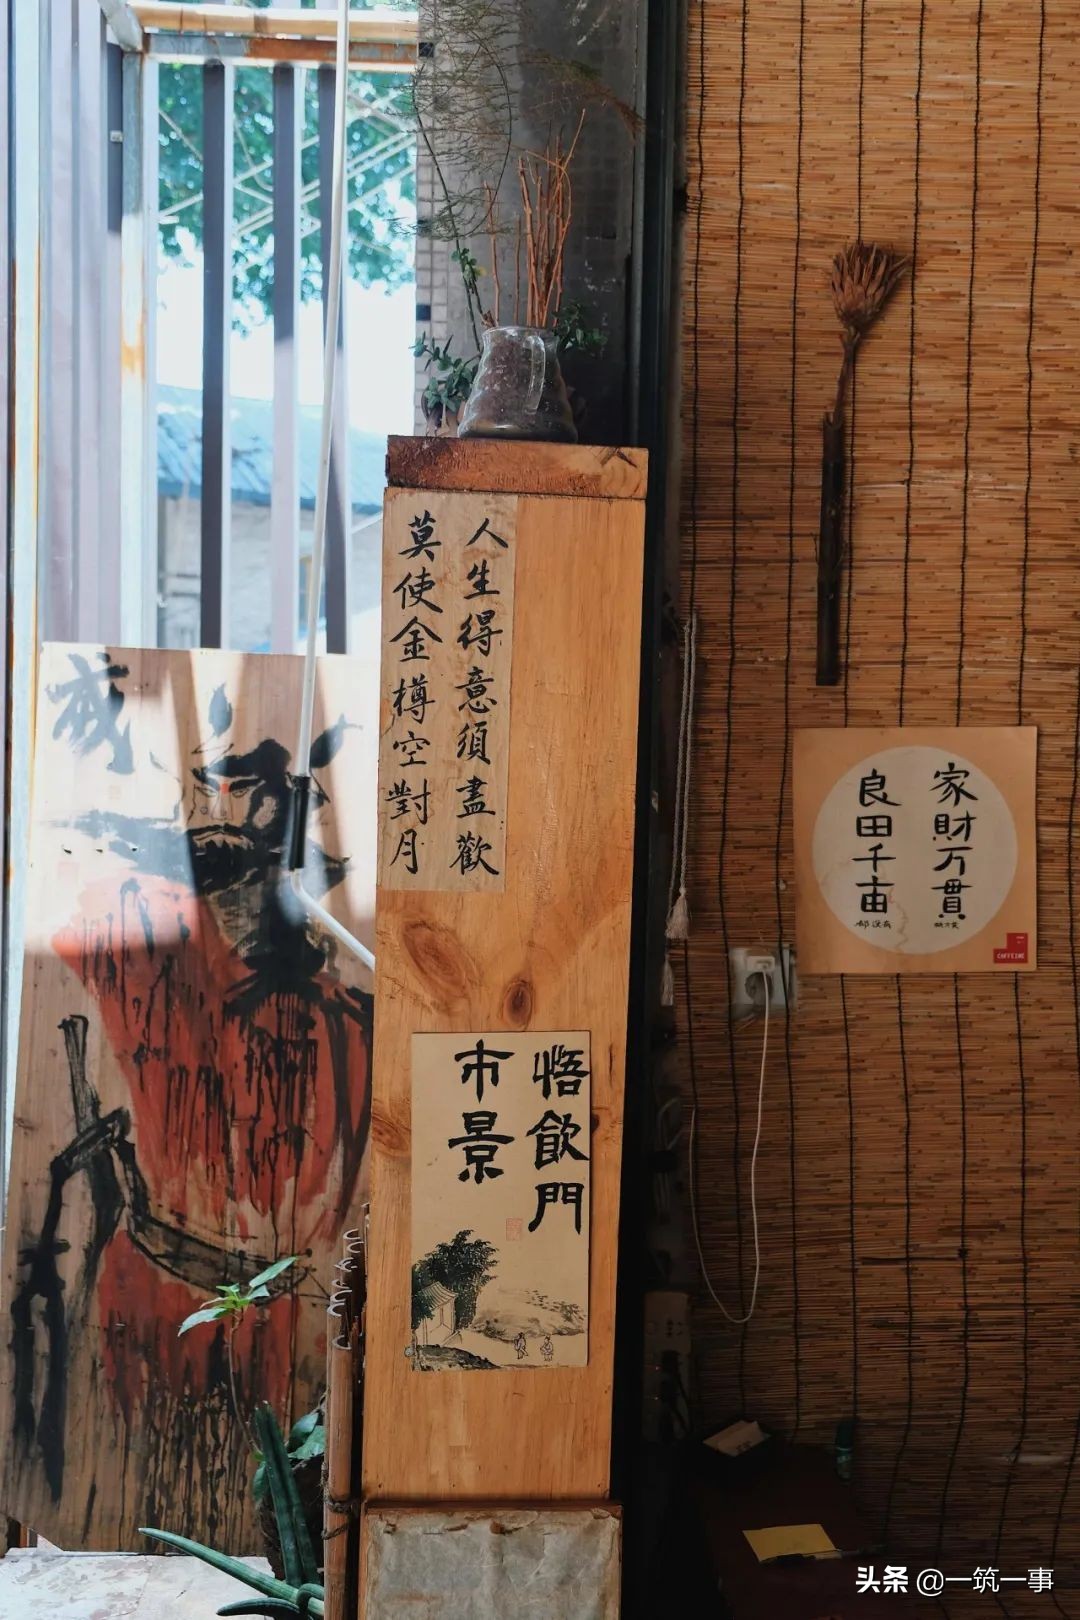 人生得意須盡歡
莫使金樽空對月
悟飲門
市景
家財万貫
良田千亩
都没有
戒
CAFFEINE
头条 @一筑一事